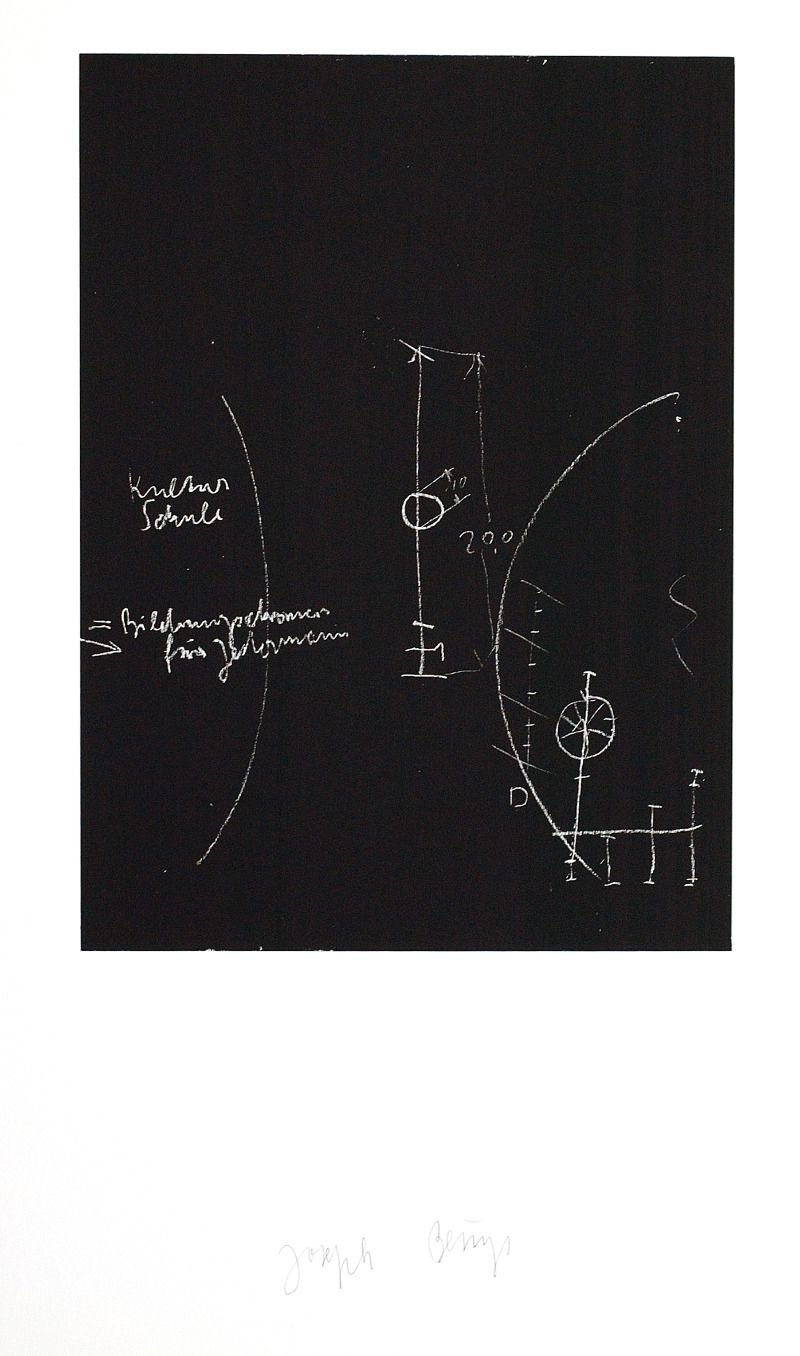 Kultur
Schule
= Bildungschancen
für Jedermann
10
20,0
D
Joseph Beuys